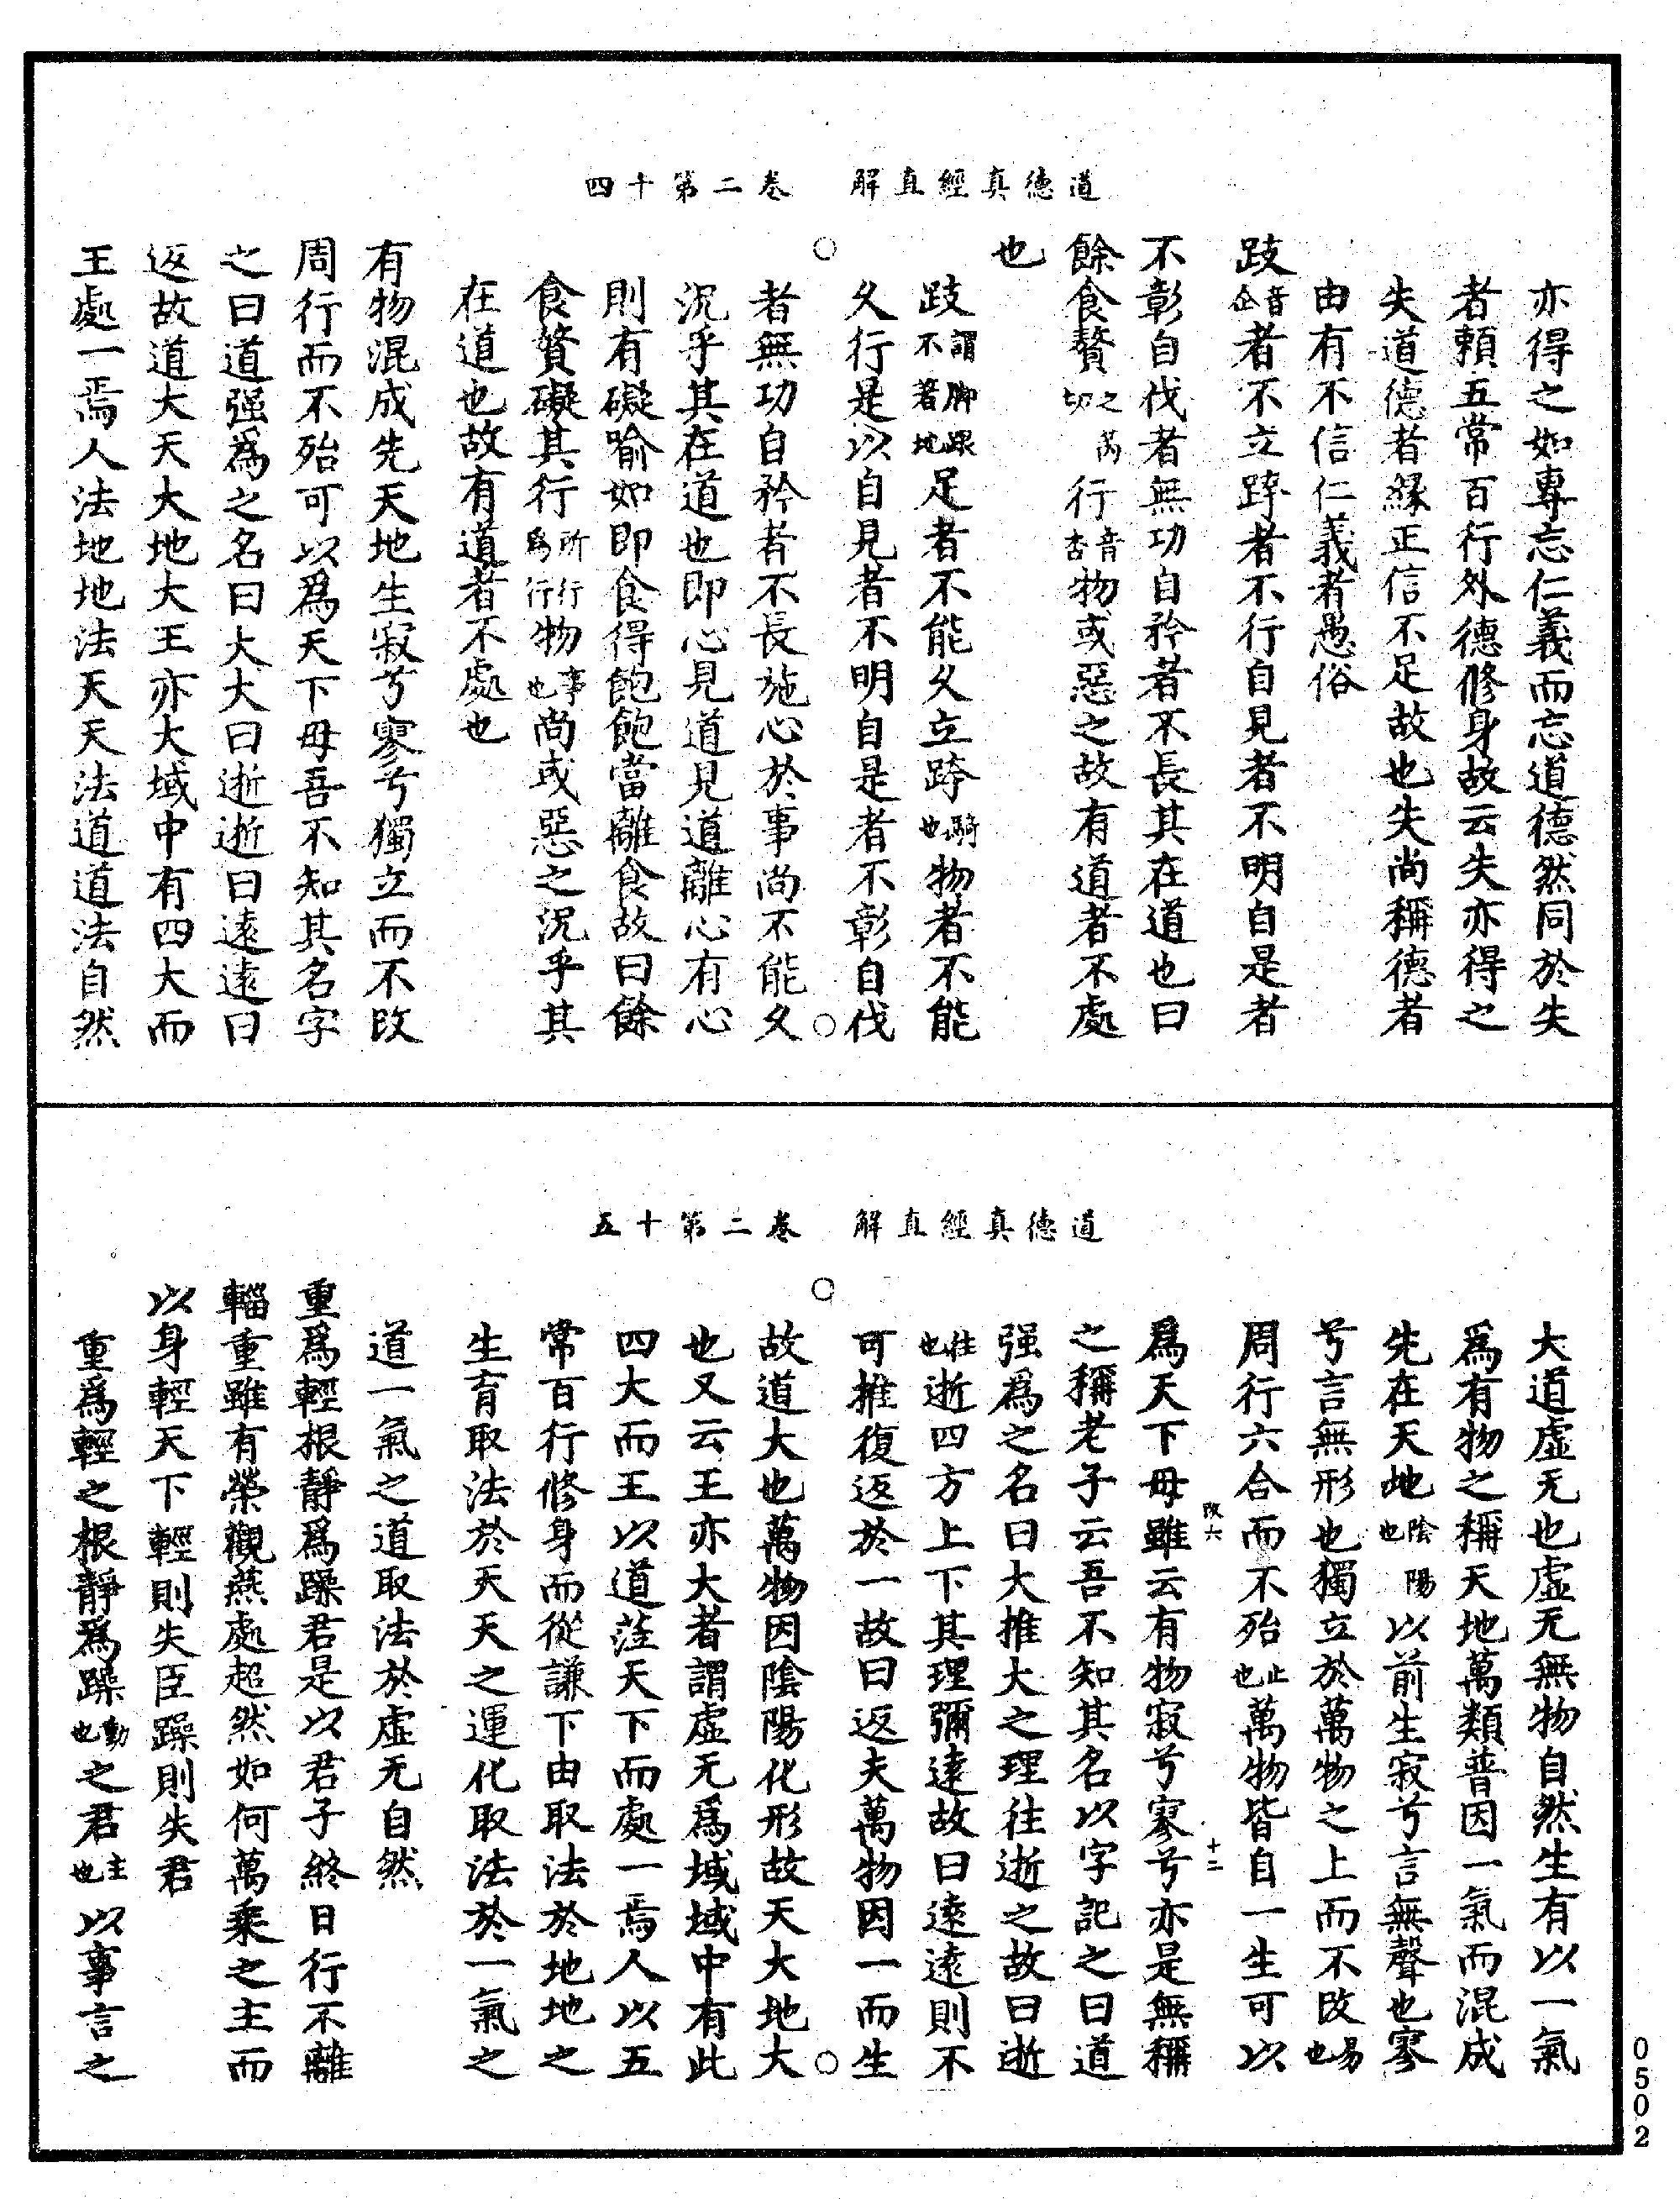 道德真經直解　卷二第十四
亦得之如專忘仁義而忘道德然同於失
者賴五常百行外德修身故云失亦得之
失道德者緣正信不足故也失尚稱德者
由有不信仁義者愚俗
跂音企者不立跨者不行自見者不明自是者
不彰自伐者無功自矜者不長其在道也曰
餘食贅之芮切行音杏物或惡之故有道者不處
也
跂謂脚跟不着地足者不能久立跨騎也物者不能
久行是以自見者不明自是者不彰自伐
者無功自矜者不長施心於事尚不能久
況乎其在道也即心見道見道離心有心
則有礙喻如即食得飽飽當離食故曰餘
食贅礙其行所行爲行物事也尚或惡之況乎其
在道也故有道者不處也
有物混成先天地生寂兮寥兮獨立而不改
周行而不殆可以爲天下母吾不知其名字
之曰道强爲之名曰大大曰逝逝曰遠遠曰
返故道大天大地大王亦大域中有四大而
王處一焉人法地地法天天法道道法自然
道德真經直解　卷二第十五
大道虛无也虛无無物自然生有以一氣
爲有物之稱天地萬類普因一氣而混成
先在天地陰陽也以前生寂兮言無聲也寥
兮言無形也獨立於萬物之上而不改易也
周行六合而不殆止也萬物皆自一生可以
改六　十二
爲天下母雖云有物寂兮寥兮亦是無稱
之稱老子云吾不知其名以字記之曰道
强爲之名曰大推大之理往逝之故曰逝
往也逝四方上下其理彌遠故曰遠遠則不
可推復返於一故曰返夫萬物因一而生
故道大也萬物因陰陽化形故天大地大
也又云王亦大者謂虛无爲域域中有此
四大而王以道莅天下而處一焉人以五
常百行修身而從謙下由取法於地地之
生育取法於天天之運化取法於一氣之
道一氣之道取法於虛无自然
重爲輕根靜爲躁君是以君子終日行不離
輜重雖有榮觀燕處超然如何萬乘之主而
以身輕天下輕則失臣躁則失君
重爲輕之根靜爲躁動也之君主也以事言之
0502